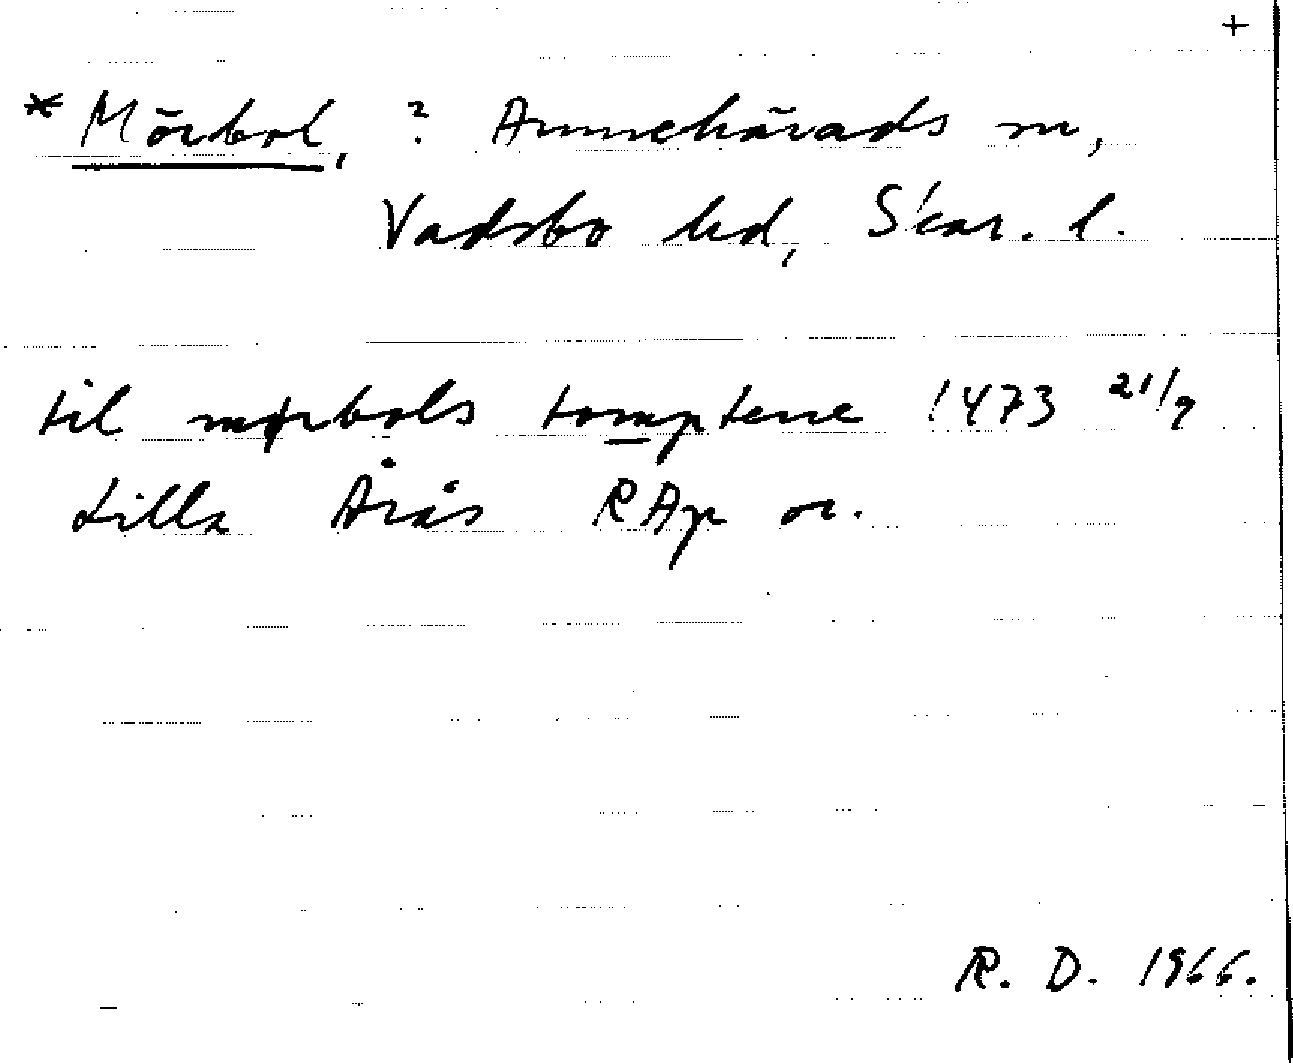 +
*Mörbol, ? Amnehärads sn,
Vadsbo hd, Skar. l.
til mørbols tomptene 1473 21/9
Lilla Årås RAp or.
R. D. 1966.